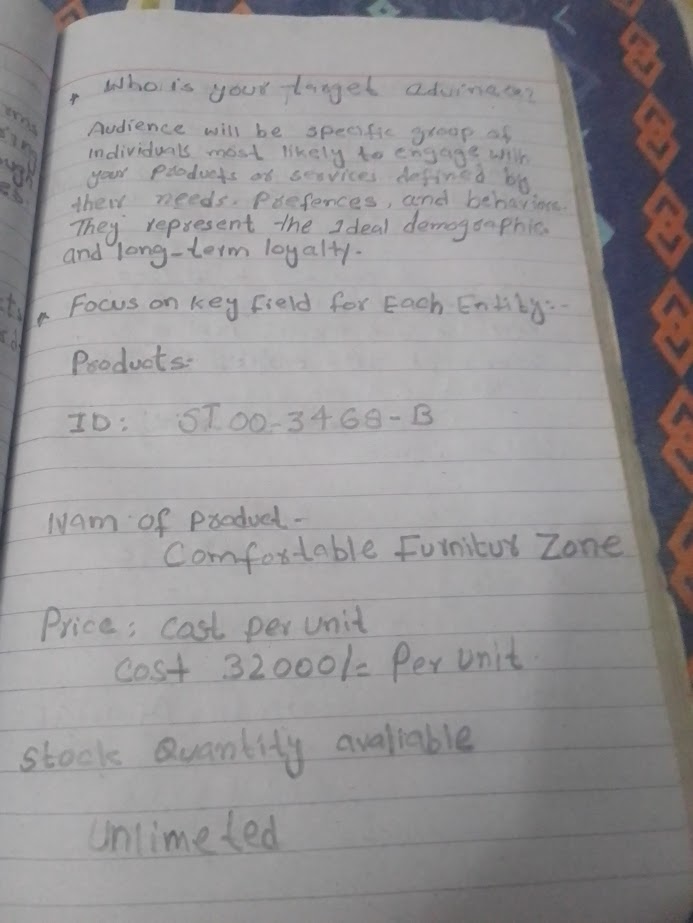 * Who is your target aduinace?
Audience will be specific group of
individuals most likely to engage with
your Products or services defined by
their needs, Prefences, and behaviors.
They represent the Ideal demographic
and long-term loyalty.
* Focus on key field for Each Entity:-
Products:
ID: ST 00-3468-B
Nam of product -
Comfortable Furnitur Zone
Price: Cast per unit
Cost 32000/= Per unit
Stock Quantity avaliable
Unlimeted